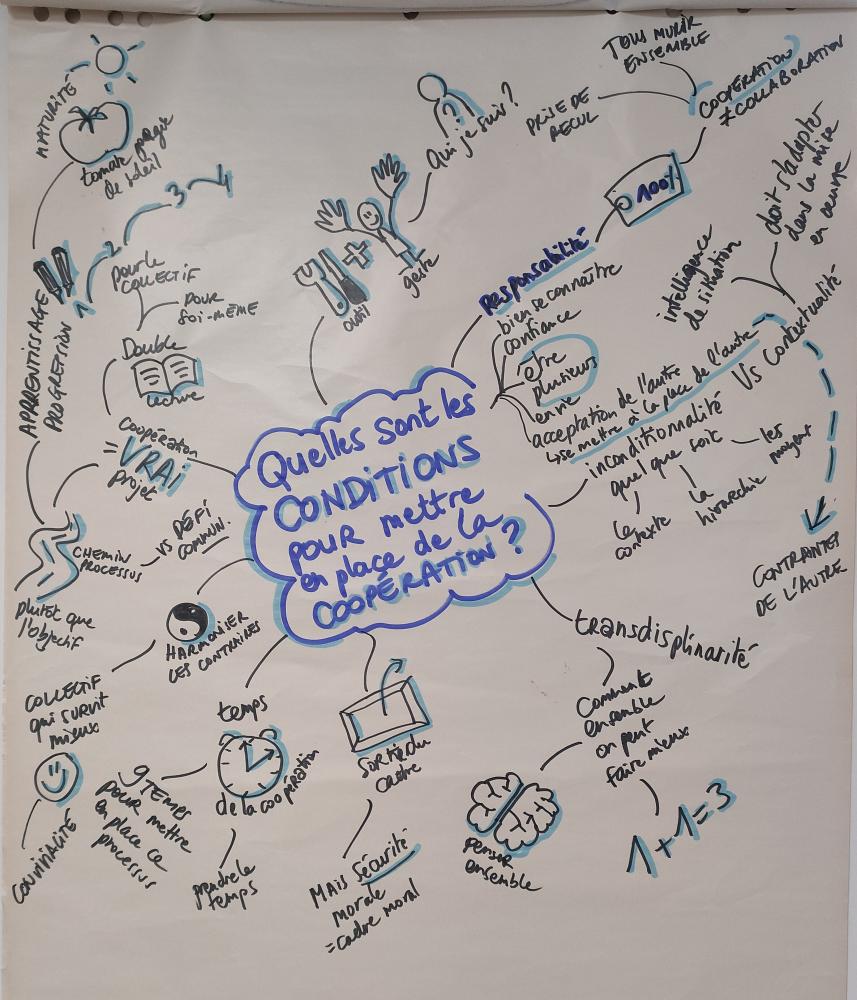 Quelles sont les
CONDITIONS
pour mettre
en place de la
COOPÉRATION ?
outil
geste
Qui je suis ?
?
Responsabilité
100%
COOPÉRATION
≠ COLLABORATION
TOUS MURIR
ENSEMBLE
PRISE DE
RECUL
bien se connaître
confiance
être
plusieurs
envie
acceptation de l'autre
↳ se mettre à la place de l'autre
inconditionnalité
quel que soit
le
contexte
la
hiérarchie
les
moyens
Vs Contextualité
intelligence
de situation
doit s'adapter
dans la mise
en œuvre
CONTRAINTES
DE L'AUTRE
transdisplinarité
Comment
ensemble
on peut
faire mieux
1+1=3
penser
ensemble
Sortie du
cadre
MAIS Sécurité
morale
= cadre moral
temps
de la coopération
prendre le
temps
POUR mettre
en place ce
processus
HARMONIER
LES CONTRAIRES
COLLECTIF
qui SURVIT
mieux
CONVIVIALITÉ
COOPÉRATION
= VRAI
projet
Double
lecture
pour le
COLLECTIF
POUR
SOI-MÊME
CHEMIN
PROCESSUS
VS DÉFI
COMMUN.
plutôt que
l'objectif
APPRENTISSAGE
PROGRESSION
1 2 3 4
MATURITÉ
tomate
de soleil